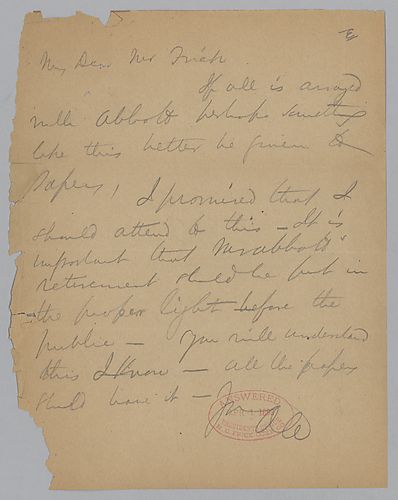 My Dear Mr Frick
If all is arranged
with Abbott perhaps something
like this better be given to
Papers, I promised that I
should attend to this — It is
important that Mr Abbott's
retirement should be put in
the proper light before the
public — You will understand
this I Know — all the papers
should have it —
ANSWERED